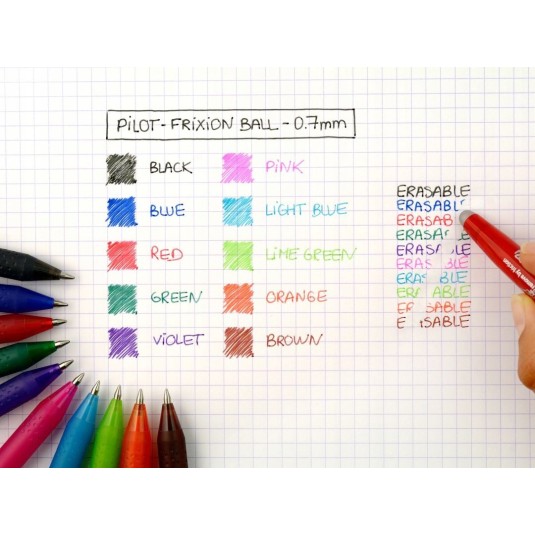 PILOT-FRIXION BALL - 0.7mm
BLACK
BLUE
RED
GREEN
VIOLET
PINK
LIGHT BLUE
LIME GREEN
ORANGE
BROWN
ERASABLE
ERASABL
ERASAB
ERASA E
ERAS LE
ERAS BLE
ERA BLE
ER ABLE
E SABLE
E SABLE